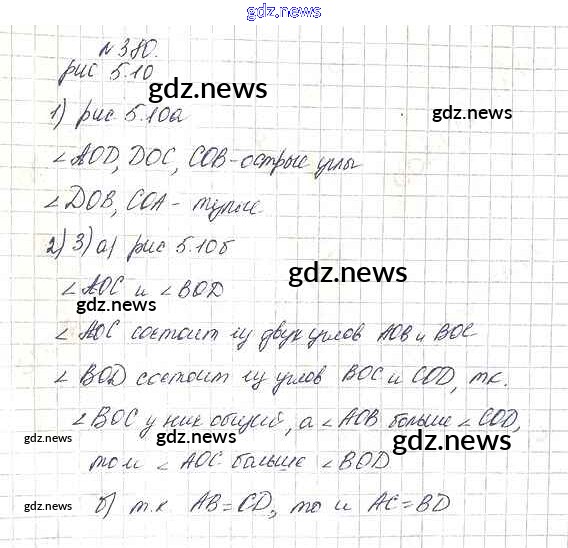 gdz.news
№380.
рис 5.10
gdz.news
1) рис. 5.10а
gdz.news
∠AOD, DOC, COB - острые углы
∠DOB, COA - тупые
2) 3) а) рис 5.10б
gdz.news
∠AOC и ∠BOD
gdz.news
∠AOC состоит из двух углов AOB и BOC
∠BOD состоит из углов BOC и COD, т.к.
∠BOC у них общий, а ∠AOB больше ∠COD,
gdz.news gdz.news gdz.news
то и ∠AOC больше ∠BOD
gdz.news
б) т.к AB=CD, то и AC=BD